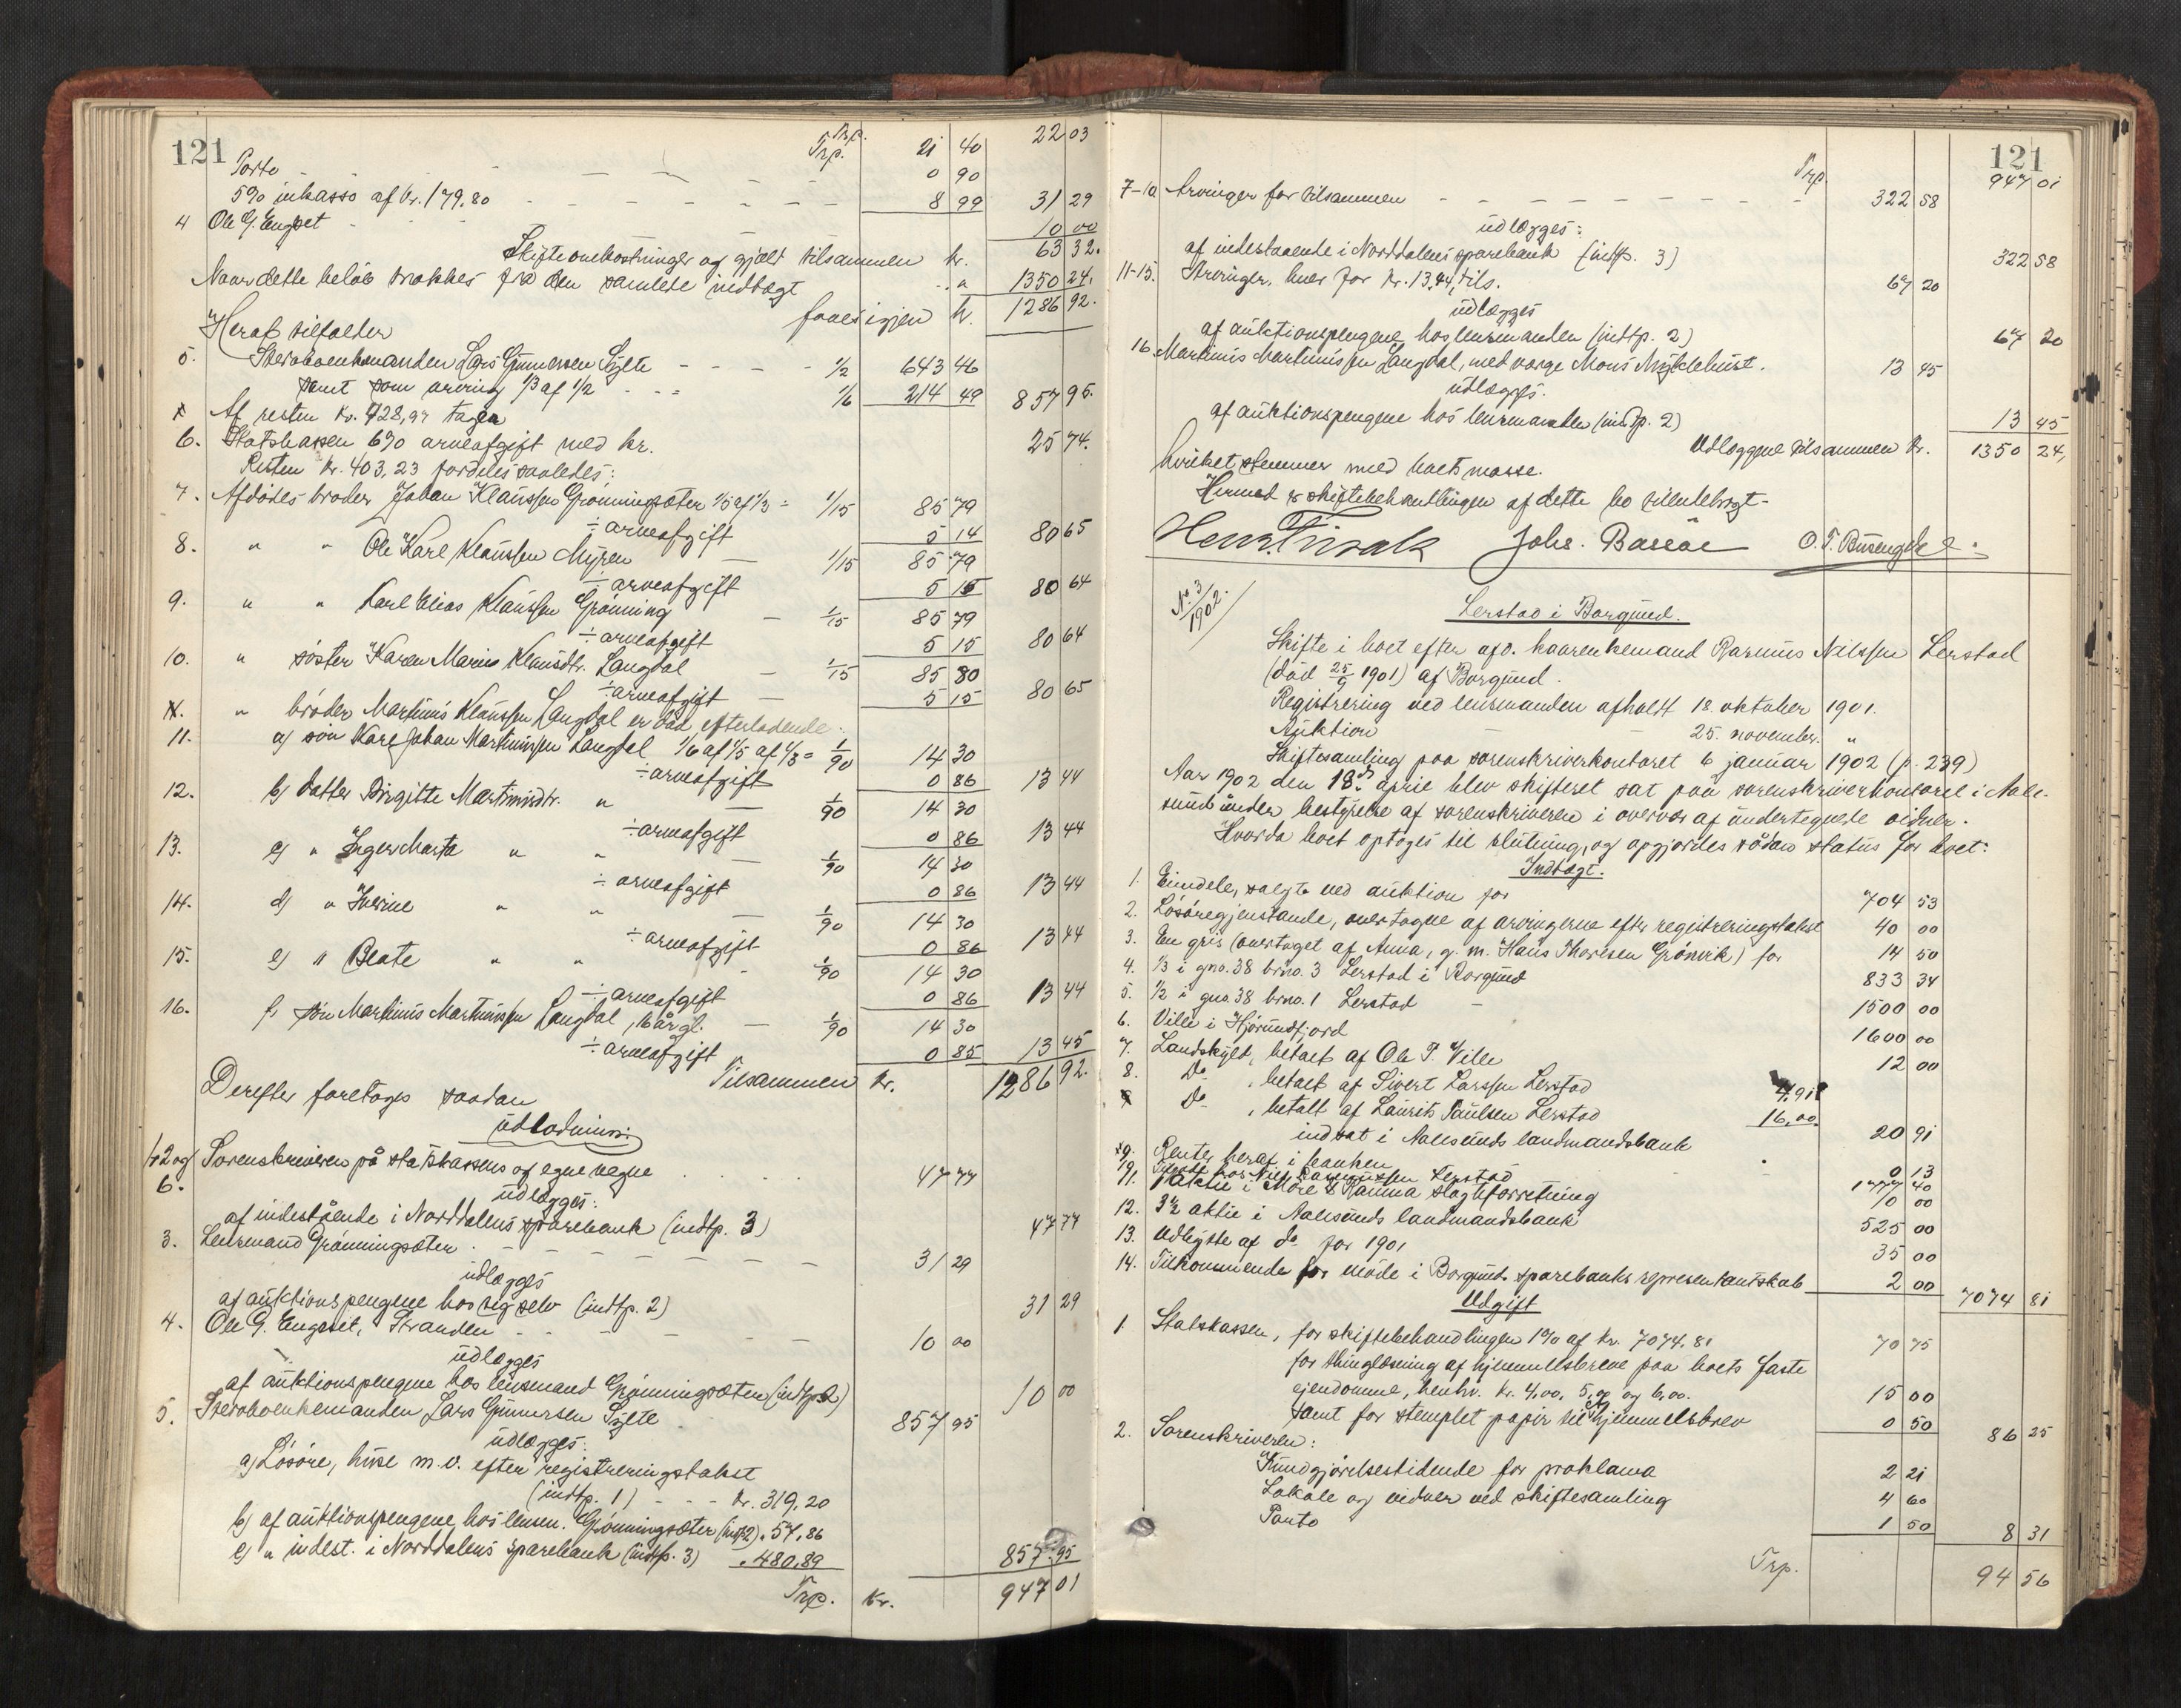 121
Trp. 22 03
Trp. 21 40
Porto - - - - - - 0 90
5% inkasso af kr. 179.80 - - - - - - - 8 99 31 29
4 Ole G. Engset - - - - 10 00
Skifteomkostninger og gjæld tilsammen kr. 63 32.
Naar dette beløb trækkes fra den samlede indtægt " 1350 24.
faaes igjen kr. 1286 92.
Heraf tilfalder
5. Stervboenkemanden Lars Gunnersen Sylte - - - - 1/2 643 46
samt som arving 1/3 af 1/2 - - - 1/6 214 49 857 95.
Af resten kr. 428,97 tager
6. Statskassen 6% arveafgift med kr. 25 74.
Resten kr. 403,23 fordeles saaledes:
7. Afdødes broder Johan Klaussen Grønningsæter 1/5 af 1/3 = 1/15 85 79
÷ arveafgift 5 14 80 65
8. " " Ole Karl Klaussen Myren — 1/15 85 79
÷ arveafgift 5 15 80 64
9. " " Karl Elias Klaussen Grønning — 1/15 85 79
÷ arveafgift 5 15 80 64
10. " søster Karen Marie Klausdtr. Langdal — 1/15 85 80
÷ arveafgift 5 15 80 65
" broder Martinus Klaussen Langdal er død efterladende:
11. a) søn Karl Johan Martinussen Langdal 1/6 af 1/5 af 1/3 = 1/90 14 30
÷ arveafgift 0 86 13 44
12. b) datter Birgitte Martinusdtr. " — 1/90 14 30
÷ arveafgift 0 86 13 44
13. c) " Inger Marta " " — 1/90 14 30
÷ arveafgift 0 86 13 44
14. d) " Iverine " " — 1/90 14 30
÷ arveafgift 0 86 13 44
15. e) " Beate " " - 1/90 14 30
÷ arveafgift 0 86 13 44
16. f) søn Martinus Martinussen Langdal, 16 år gl. — 1/90 14 30
÷ arveafgift 0 85 13 45
Tilsammen kr. 1286 92.
Derefter foretoges saadan
udlodning:
1, 2 og 6. Sorenskriveren på statskassens og egne vegne . . . . 47 77
udlægges:
af indestående i Norddalens sparebank (indtp. 3) 47 77
3. Lensmand Grønningsæter - - - - - - - 31 29
udlægges
af auktionspengene hos sig selv (indtp. 2) 31 29
4. Ole G. Engeset, Stranden - - - - - 10 00
udlægges
af auktionspengene hos lensmand Grønningsæter (indtp. 2) 10 00
5. Stervboenkemanden Lars Gunnersen Sylte 857 95
udlægges:
a) Løsøre, huse m.v. efter registreringstakst
(indtp. 1) - - - kr. 319.20
b) af auktionspengene hos lensm. Grønningsæter (indtp. 2) " 57.86
c) " indest. i Norddalens sparebank (indtp. 3) " 480.89 857.95
Trp. Kr. 947 01
121
Trp. 947 01
7-10 Arvinger for tilsammen - - - - - - - - 322 58
udlægges:
af indestaaende i Norddalens sparebank (indtp. 3) 322 58
11-15. Arvinger, hver for kr. 13,44, tils. 67 20
udlægges
af auktionspengene hos lensmanden (indtp. 2) 67 20
16 Martinus Martinussen Langdal, med værge Mons Myklebust. 13 45
udlægges.
af auktionspengene hos lensmanden (indtp. 2) 13 45
Udlæggene tilsammen kr. 1350 24,
hvilket stemmer med boets masse.
Hermed er skiftebehandlingen af dette bo tilendebragt -
Johs. Bassøe
No. 3/1902.
Lerstad i Borgund.
Skifte i boet efter afd. kaarenkemand Rasmus Nilssen Lerstad
(død 25/9 1901) af Borgund.
Registrering ved lensmanden afholdt 18. oktober 1901.
Auktion — — 25. november "
Skiftesamling paa sorenskriverkontoret 6 januar 1902 (p. 239)
Aar 1902 den 18de april blev skifteret sat paa sorenskriverkontoret i Aale-
sund under bestyrelse af sorenskriveren i overvær af undertegnede vidner.
Hvorda boet optoges til slutning, og opgjordes sådan status for boet:
Indtægt.
1. Eiendele, solgte ved auktion for 704 53
2. Løsøregjenstande, overtagne af arvingerne efter registreringstakst 40 00
3. En gris (overtaget af Anna, g. m. Hans Thoresen Grønvik) for 14 50
4. 1/3 i gno. 38 brno. 3 Lerstad i Borgund 833 34
5. 1/2 i gno. 38 brno. 1 Lerstad — 1500 00
6. Ville i Hjørundfjord 1600 00
7. Landskyld, betalt af Ole P. Ville 12 00
8. Do , betalt af Sivert Larssen Lerstad 4.91
Do , betalt af Laurits Paulsen Lerstad 16.00.
indsat i Aalesunds landmandsbank 20 91
9. Renter heraf i banken 0 13
Nils Rasmussen Lerstad 1777 40
11. 1 aktie i Møre & Rauma slagteforretning 10 00
12. 3 1/2 aktie i Aalesunds landmandsbank 525 00
13. Udbytte af do for 1901 35 00
14. Tilkommende for møde i Borgunds sparebanks representantskab 2 00 7074 81
Udgift
1. Statskassen, for skiftebehandlingen 1% af kr. 7074.81 70 75
for thinglæsning af hjemmelsbreve paa boets faste
ejendomme, henhv. kr. 4.00, 5.00 og 6.00. 15 00
samt for stemplet papir til hjemmelsbrev 0 50 86 25
2. Sorenskriveren:
Kundgjørelsestidende for proklama 2 21
Lokale og vidner ved skiftesamling 4 60
Porto 1 50 8 31
Trp. 94 56